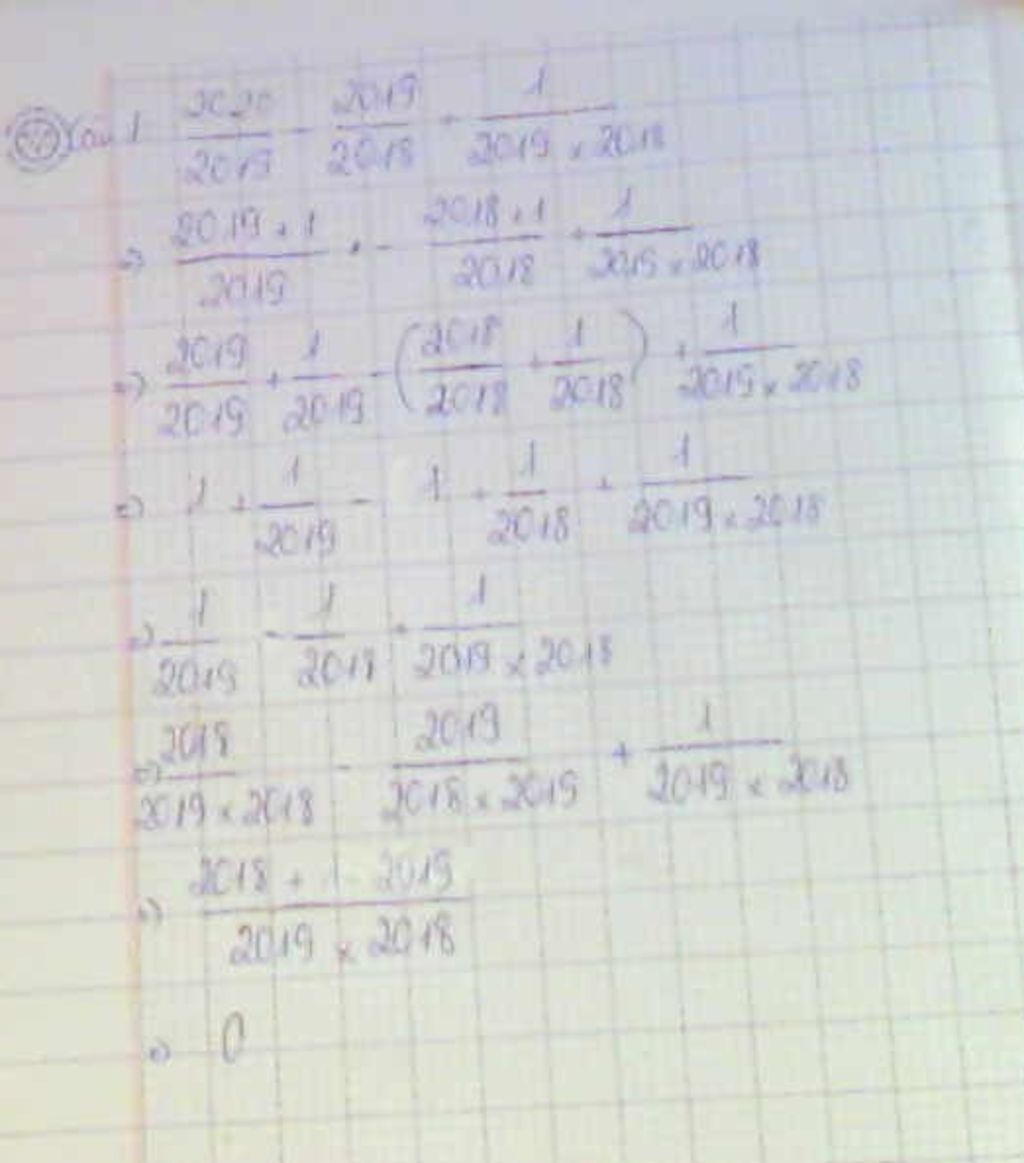 Câu 1 2020/2019 - 2019/2018 + 1/(2019 x 2018)
=> (2019 + 1)/2019 - (2018 + 1)/2018 + 1/(2019 x 2018)
=> 2019/2019 + 1/2019 - (2018/2018 + 1/2018) + 1/(2019 x 2018)
=> 1 + 1/2019 - 1 + 1/2018 + 1/(2019 x 2018)
=> 1/2019 - 1/2018 + 1/(2019 x 2018)
=> 2018/(2019 x 2018) - 2019/(2018 x 2019) + 1/(2019 x 2018)
=> (2018 + 1 - 2019)/(2019 x 2018)
=> 0